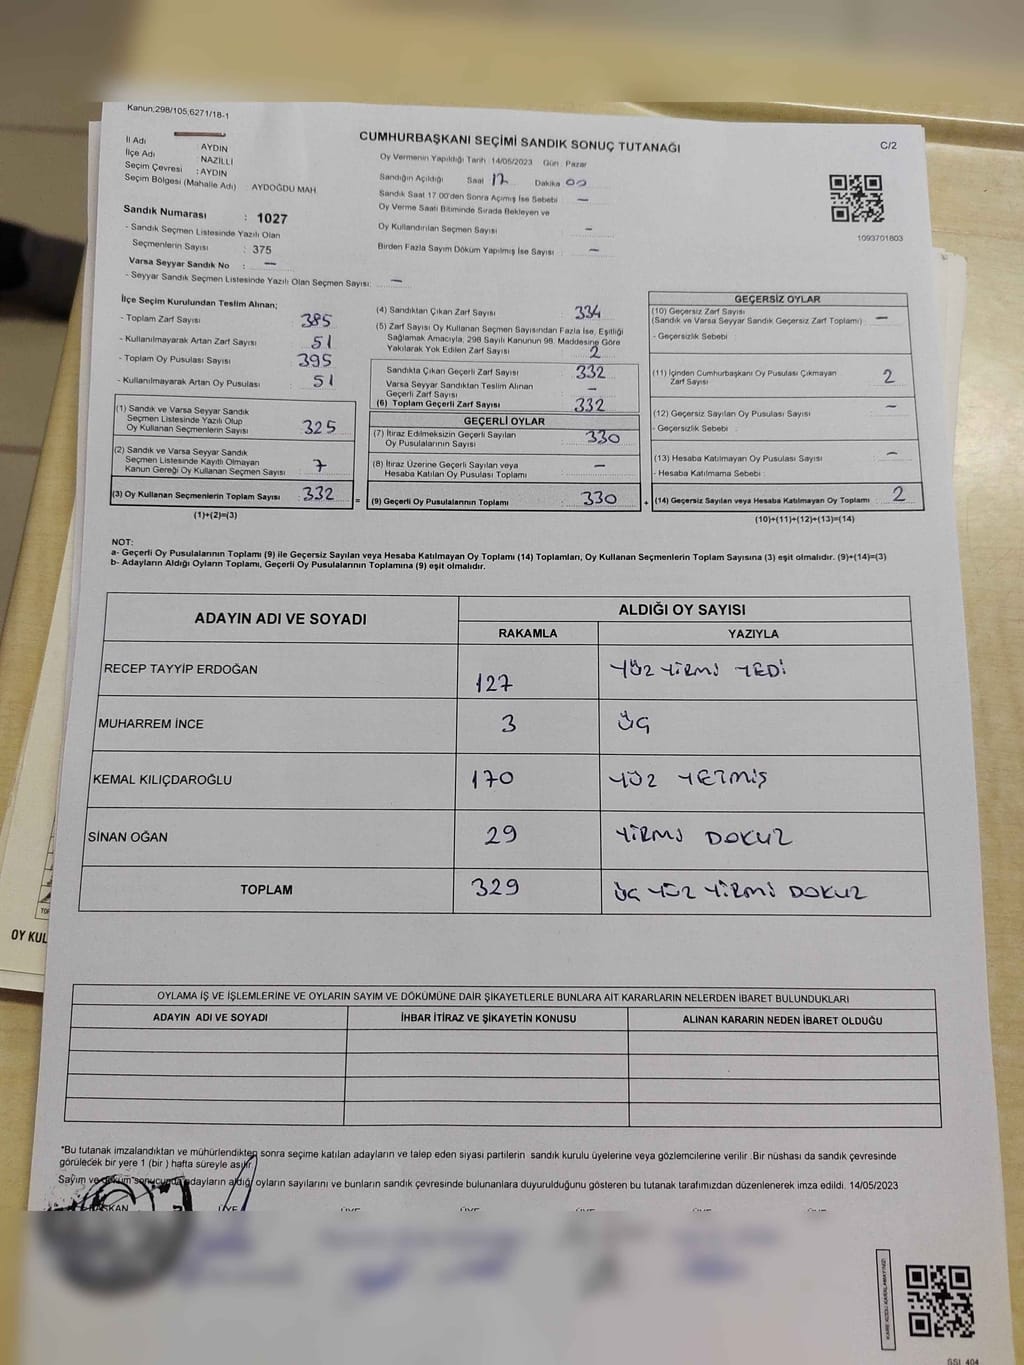 Kanun,298/105,6271/18-1
CUMHURBAŞKANI SEÇİMİ SANDIK SONUÇ TUTANAĞI
C/2
İl Adı : AYDIN
İlçe Adı : NAZİLLİ
Seçim Çevresi : AYDIN
Seçim Bölgesi (Mahalle Adı) : AYDOĞDU MAH.
Sandık Numarası : 1027
- Sandık Seçmen Listesinde Yazılı Olan
Seçmenlerin Sayısı : 375
Varsa Seyyar Sandık No : —
- Seyyar Sandık Seçmen Listesinde Yazılı Olan Seçmen Sayısı: —
Oy Vermenin Yapıldığı Tarih :14/05/2023 Gün : Pazar
Sandığın Açıldığı Saat 17 Dakika 00
Sandık Saat 17:00'den Sonra Açımış İse Sebebi —
Oy Verme Saati Bitiminde Sırada Bekleyen ve
Oy Kullandırılan Seçmen Sayısı —
Birden Fazla Sayım Döküm Yapılmış İse Sayısı : —
1093701803
İlçe Seçim Kurulundan Teslim Alınan;
- Toplam Zarf Sayısı : 385
- Kullanılmayarak Artan Zarf Sayısı : 51
- Toplam Oy Pusulası Sayısı : 395
- Kullanılmayarak Artan Oy Pusulası : 51
(1) Sandık ve Varsa Seyyar Sandık
Seçmen Listesinde Yazılı Olup
Oy Kullanan Seçmenlerin Sayısı : 325
(2) Sandık ve Varsa Seyyar Sandık
Seçmen Listesinde Kayıtlı Olmayan
Kanun Gereği Oy Kullanan Seçmen Sayısı : 7
(3) Oy Kullanan Seçmenlerin Toplam Sayısı : 332
(1)+(2)=(3)
=
(4) Sandıktan Çıkan Zarf Sayısı : 334
(5) Zarf Sayısı Oy Kullanan Seçmen Sayısından Fazla İse, Eşitliği
Sağlamak Amacıyla, 298 Sayılı Kanunun 98. Maddesine Göre
Yakılarak Yok Edilen Zarf Sayısı : 2
Sandıkta Çıkan Geçerli Zarf Sayısı : 332
Varsa Seyyar Sandıktan Teslim Alınan
Geçerli Zarf Sayısı : —
(6) Toplam Geçerli Zarf Sayısı : 332
GEÇERLİ OYLAR
(7) İtiraz Edilmeksizin Geçerli Sayılan
Oy Pusulalarının Sayısı : 330
(8) İtiraz Üzerine Geçerli Sayılan veya
Hesaba Katılan Oy Pusulası Toplamı : —
(9) Geçerli Oy Pusulalarının Toplamı : 330
+
GEÇERSİZ OYLAR
(10) Geçersiz Zarf Sayısı
(Sandık ve Varsa Seyyar Sandık Geçersiz Zarf Toplamı) : —
- Geçersizlik Sebebi :
(11) İçinden Cumhurbaşkanı Oy Pusulası Çıkmayan
Zarf Sayısı : 2
(12) Geçersiz Sayılan Oy Pusulası Sayısı : —
- Geçersizlik Sebebi :
(13) Hesaba Katılmayan Oy Pusulası Sayısı : —
- Hesaba Katılmama Sebebi :
(14) Geçersiz Sayılan veya Hesaba Katılmayan Oy Toplamı : 2
(10)+(11)+(12)+(13)=(14)
NOT:
a- Geçerli Oy Pusulalarının Toplamı (9) ile Geçersiz Sayılan veya Hesaba Katılmayan Oy Toplamı (14) Toplamları, Oy Kullanan Seçmenlerin Toplam Sayısına (3) eşit olmalıdır. (9)+(14)=(3)
b- Adayların Aldığı Oyların Toplamı, Geçerli Oy Pusulalarının Toplamına (9) eşit olmalıdır.
ADAYIN ADI VE SOYADI
ALDIĞI OY SAYISI
RAKAMLA YAZIYLA
RECEP TAYYİP ERDOĞAN 127 YÜZ YİRMİ YEDİ
MUHARREM İNCE 3 ÜÇ
KEMAL KILIÇDAROĞLU 170 YÜZ YETMİŞ
SİNAN OĞAN 29 YİRMİ DOKUZ
TOPLAM 329 ÜÇ YÜZ YİRMİ DOKUZ
OYLAMA İŞ VE İŞLEMLERİNE VE OYLARIN SAYIM VE DÖKÜMÜNE DAİR ŞİKAYETLERLE BUNLARA AİT KARARLARIN NELERDEN İBARET BULUNDUKLARI
ADAYIN ADI VE SOYADI İHBAR İTİRAZ VE ŞİKAYETİN KONUSU ALINAN KARARIN NEDEN İBARET OLDUĞU
*Bu tutanak imzalandıktan ve mühürlendikten sonra seçime katılan adayların ve talep eden siyasi partilerin sandık kurulu üyelerine veya gözlemcilerine verilir .Bir nüshası da sandık çevresinde
görülecek bir yere 1 (bir ) hafta süreyle asılır.
Sayım ve döküm sonucunda adayların aldığı oyların sayılarını ve bunların sandık çevresinde bulunanlara duyurulduğunu gösteren bu tutanak tarafımızdan düzenlenerek imza edildi. 14/05/2023
OY KUL
GSI_404